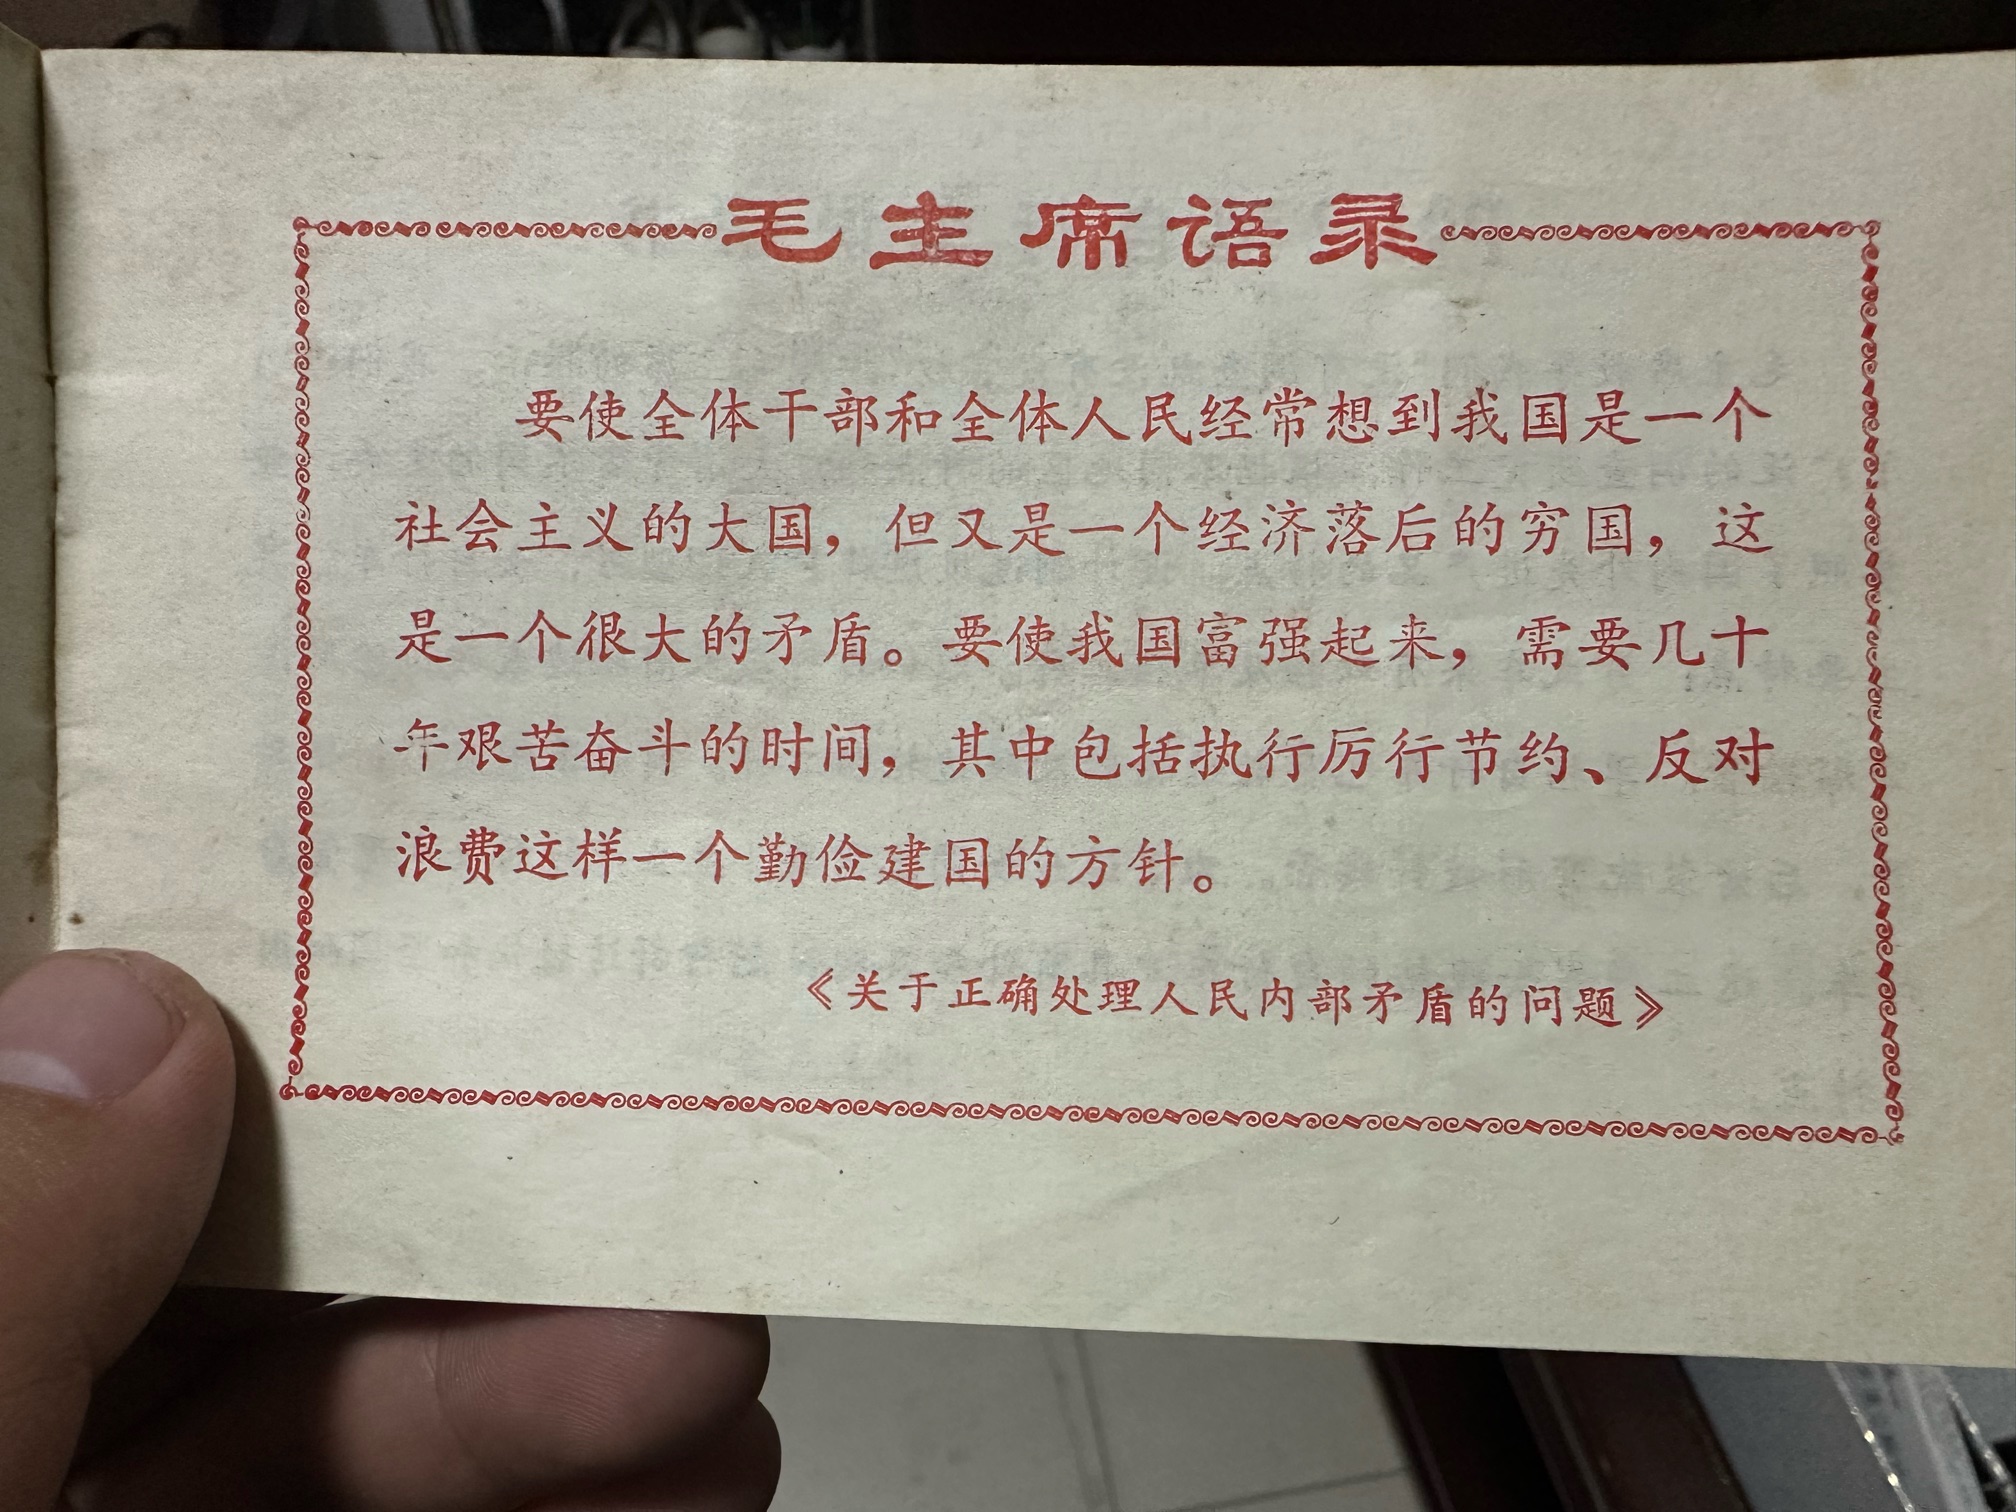 毛主席语录
要使全体干部和全体人民经常想到我国是一个
社会主义的大国，但又是一个经济落后的穷国，这
是一个很大的矛盾。要使我国富强起来，需要几十
年艰苦奋斗的时间，其中包括执行厉行节约、反对
浪费这样一个勤俭建国的方针。
《关于正确处理人民内部矛盾的问题》